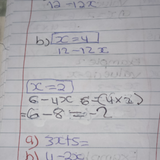 12-12x
b) x=4
12-12x
x=2
6-4x 6-(4x2)
=6-8=-2
a) 3x+5=
b) 4-2x